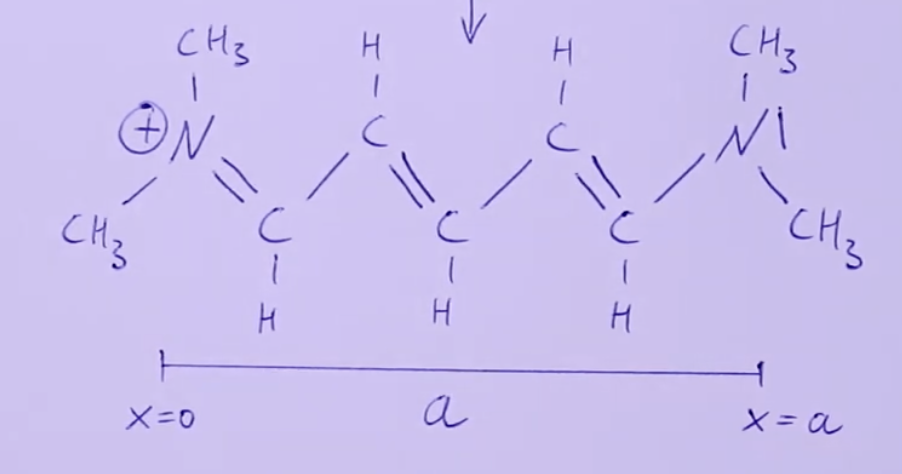 CH₃ H H CH₃
⊕ N C C N|
CH₃ C C C CH₃
H H H
x=0 a x=a